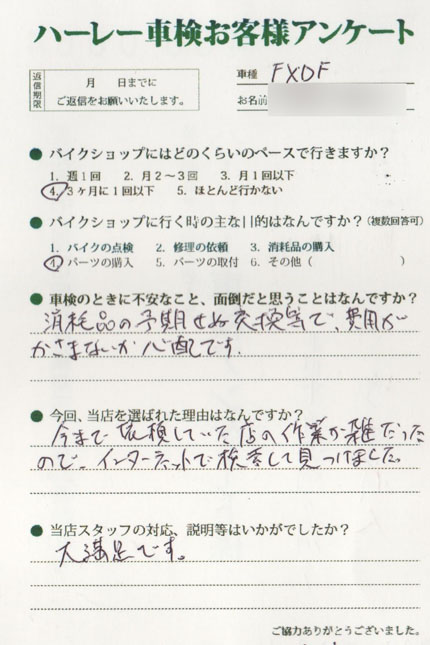 ハーレー車検お客様アンケート
返信期限
月 日までに
ご返信をお願いいたします。
車種 FXDF
お名前
● バイクショップにはどのくらいのペースで行きますか?
1. 週1回 2. 月2〜3回 3. 月1回以下
4. 3ヶ月に1回以下 5. ほとんど行かない
● バイクショップに行く時の主な目的はなんですか?(複数回答可)
1. バイクの点検 2. 修理の依頼 3. 消耗品の購入
4. パーツの購入 5. パーツの取付 6. その他( )
● 車検のときに不安なこと、面倒だと思うことはなんですか?
消耗品の予期せぬ交換等で、費用が
かさまないか心配です.
● 今回、当店を選ばれた理由はなんですか?
今まで依頼していた店の作業が雑だった
ので、インターネットで検索して見つけました。
● 当店スタッフの対応、説明等はいかがでしたか?
大満足です。
ご協力ありがとうございました。